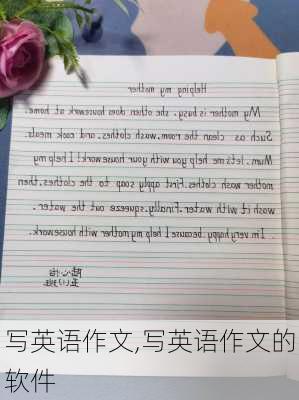 Helping my mother
My mother is busy. she other does housework at home.
Such as clean the room, wash clothes, and cook meals.
Mum, let's me help you with your housework! I help my
mother wash clothes. First, apply soap to the clothes, then
wash it with water. Finally, squeeze out the water.
I'm very happy because I help my mother with housework.
陆心怡
五(1)班
写英语作文,写英语作文的
软件